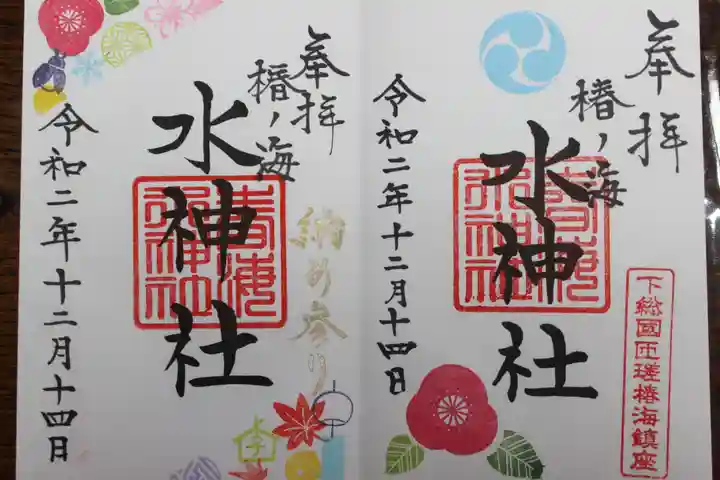 奉拝
椿ノ海
水神社
令和二年十二月十四日
下総國匝瑳椿海鎮座
奉拝
椿ノ海
水神社
納め参り
令和二年十二月十四日